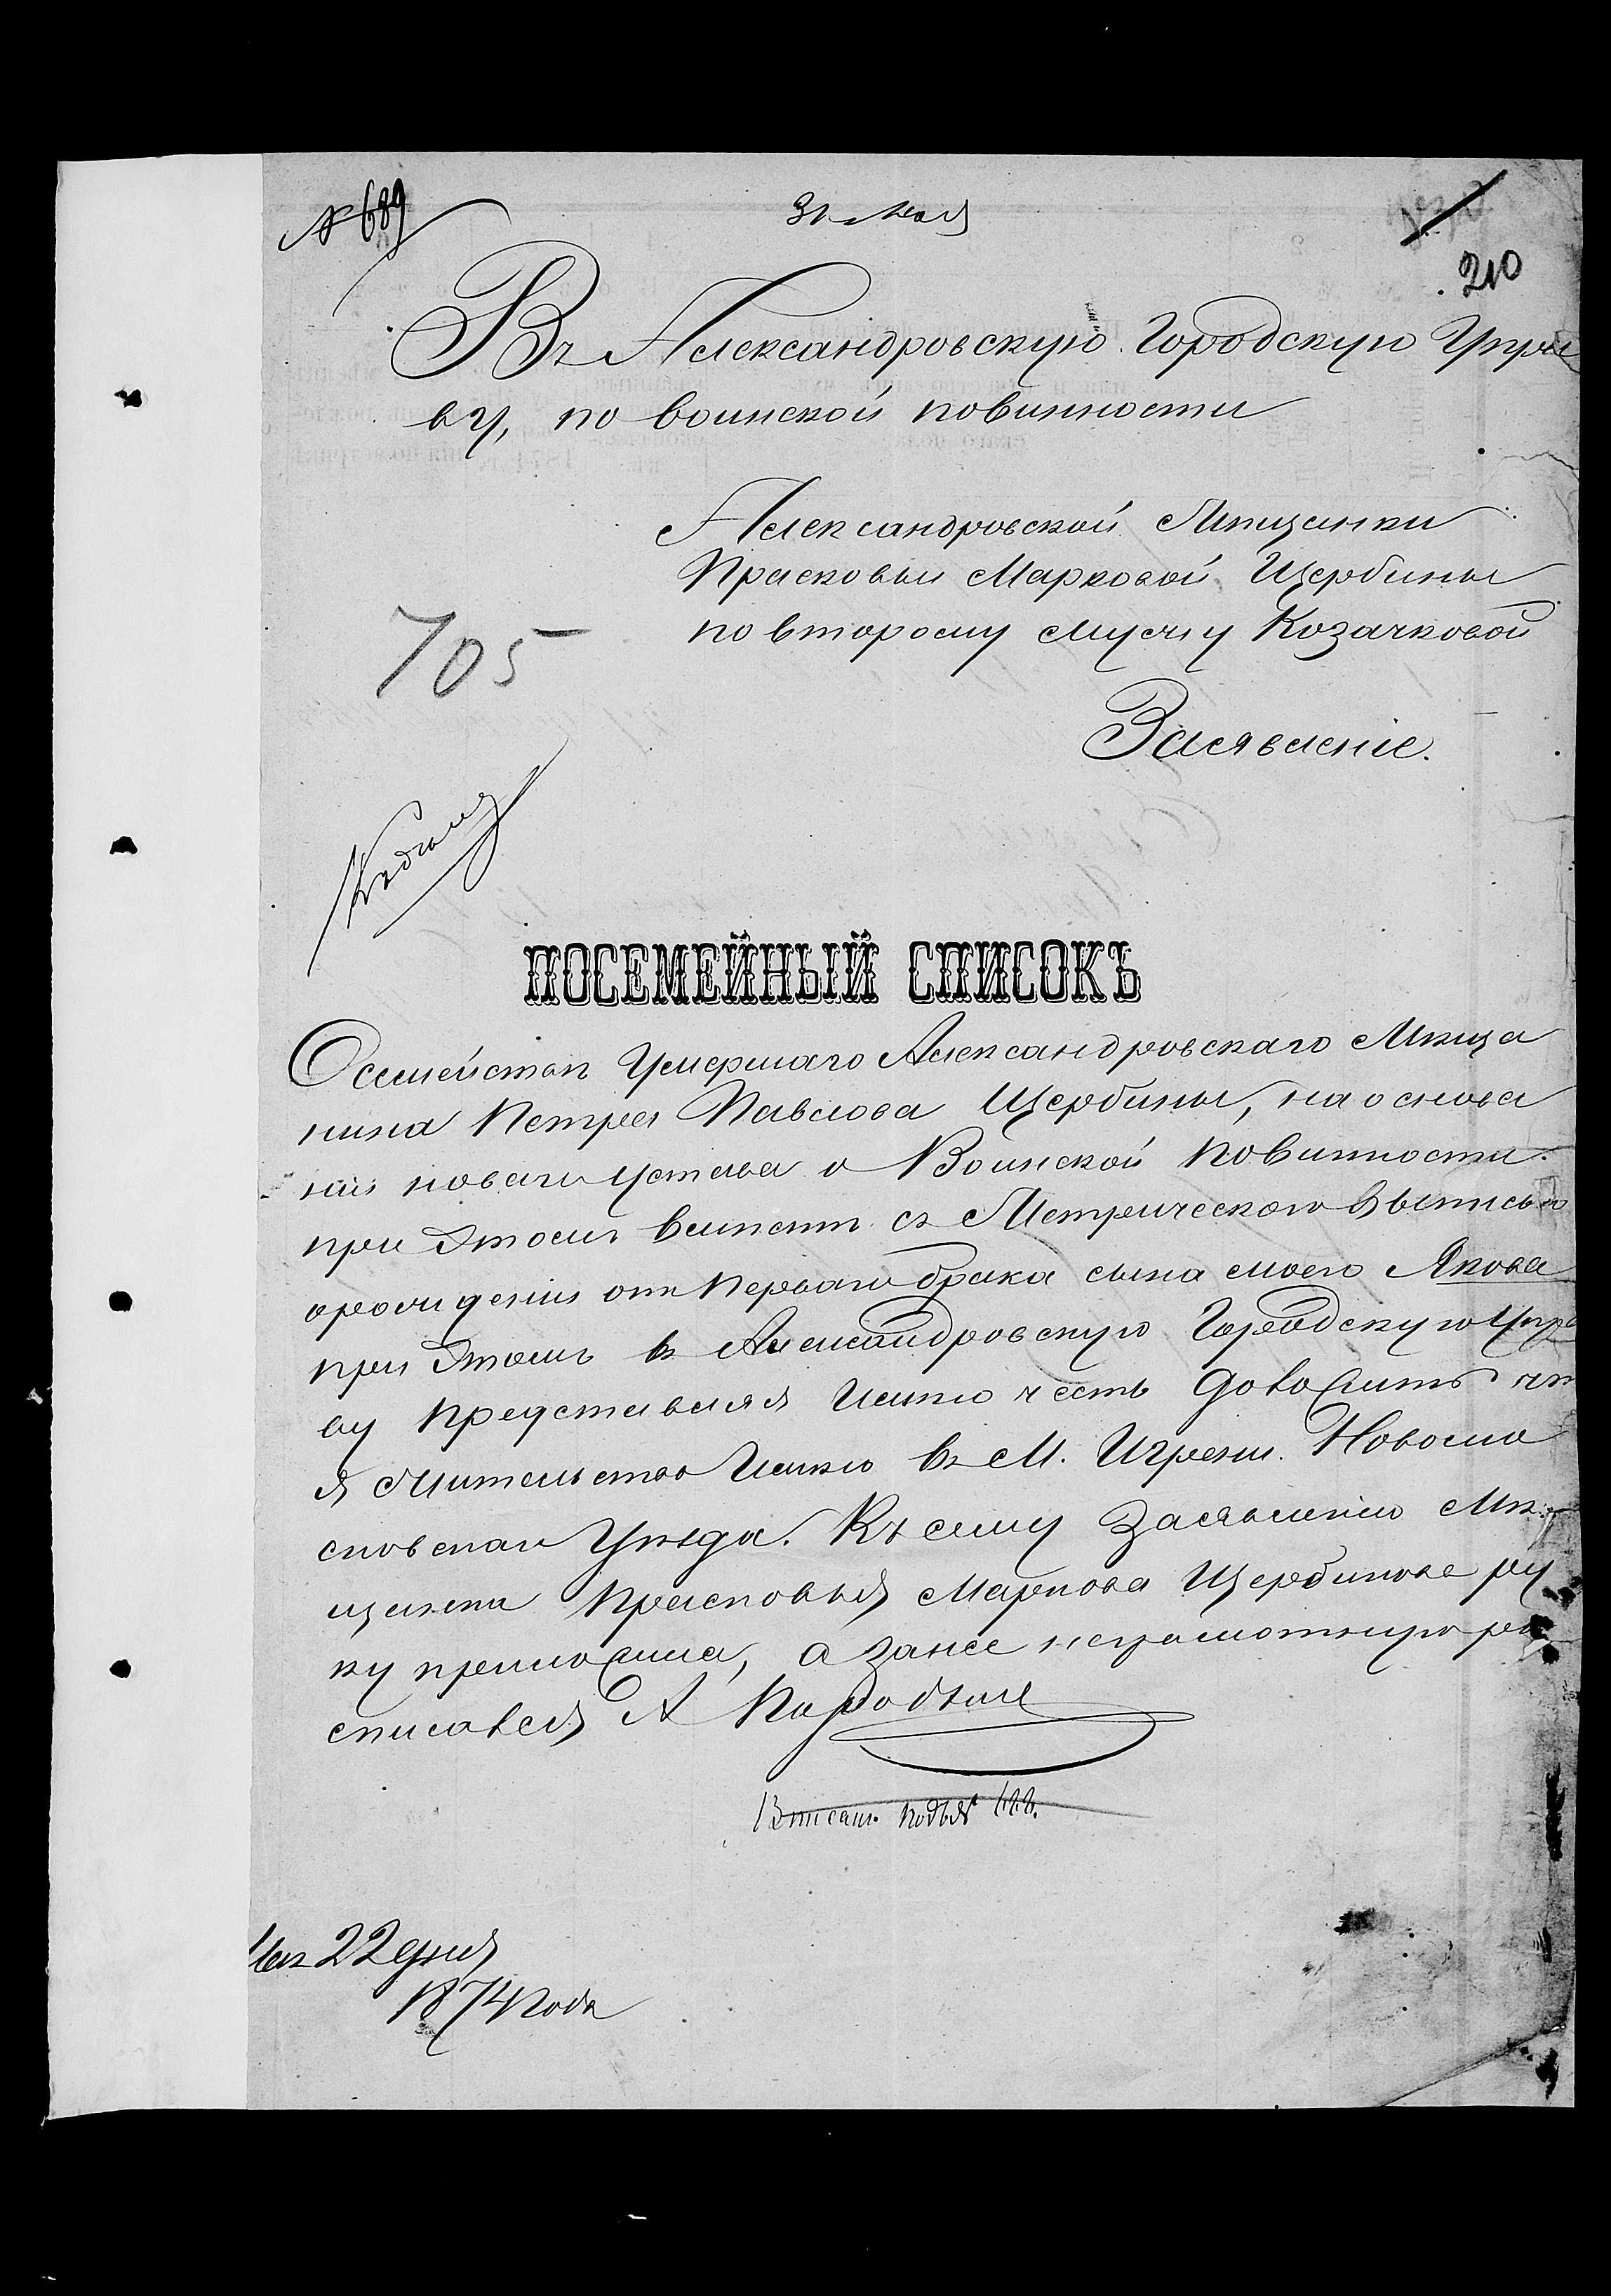 № 689
31 Мая
210
Въ Александровскую Городскую Упра
ву, по воинской повинности
Александровской Мѣщанки
Прасковьи Марковой Щербины
по второму мужу Козачковой
705
Заявленіе.
ПОСЕМЕЙНЫЙ СПИСОКЪ
О семействѣ Умершаго Александровскаго Мѣща
нина Петра Павлова Щербины, на основа
ніи новаго Устава о Воинской повинности
при этомъ вмѣстѣ съ Метрическою Выписью
о рожденіи отъ перваго брака сына моего Якова
при этомъ въ Александровскую Городскую Упра
ву Представляя Имѣю честь доложить чт
я жительство Имѣю въ М. Игрени. Новомо
сковскаго Уѣзда. Къ сему Заявленію Мѣ
щанка Прасковья Маркова Щербинова ру
ку приложила, а за нее неграмотную ра
списался А
Вписанъ подъ № 422.
Мая 22 дня
1874 Года